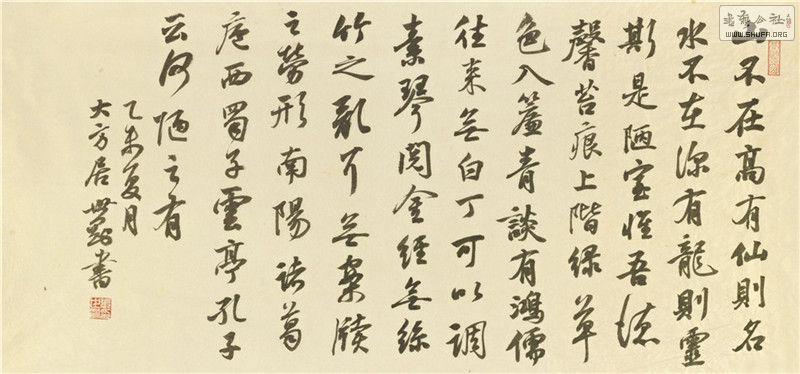 山不在高有仙則名
水不在深有龍則靈
斯是陋室惟吾德
馨苔痕上階綠草
色入簾青談有鴻儒
往来無白丁可以調
素琴閱金經無絲
竹之亂耳無案牘
之勞形南陽諸葛
廬西蜀子雲亭孔子
云何陋之有
乙未夏月
大方居世書
书法公社
WWW.SHUFA.ORG